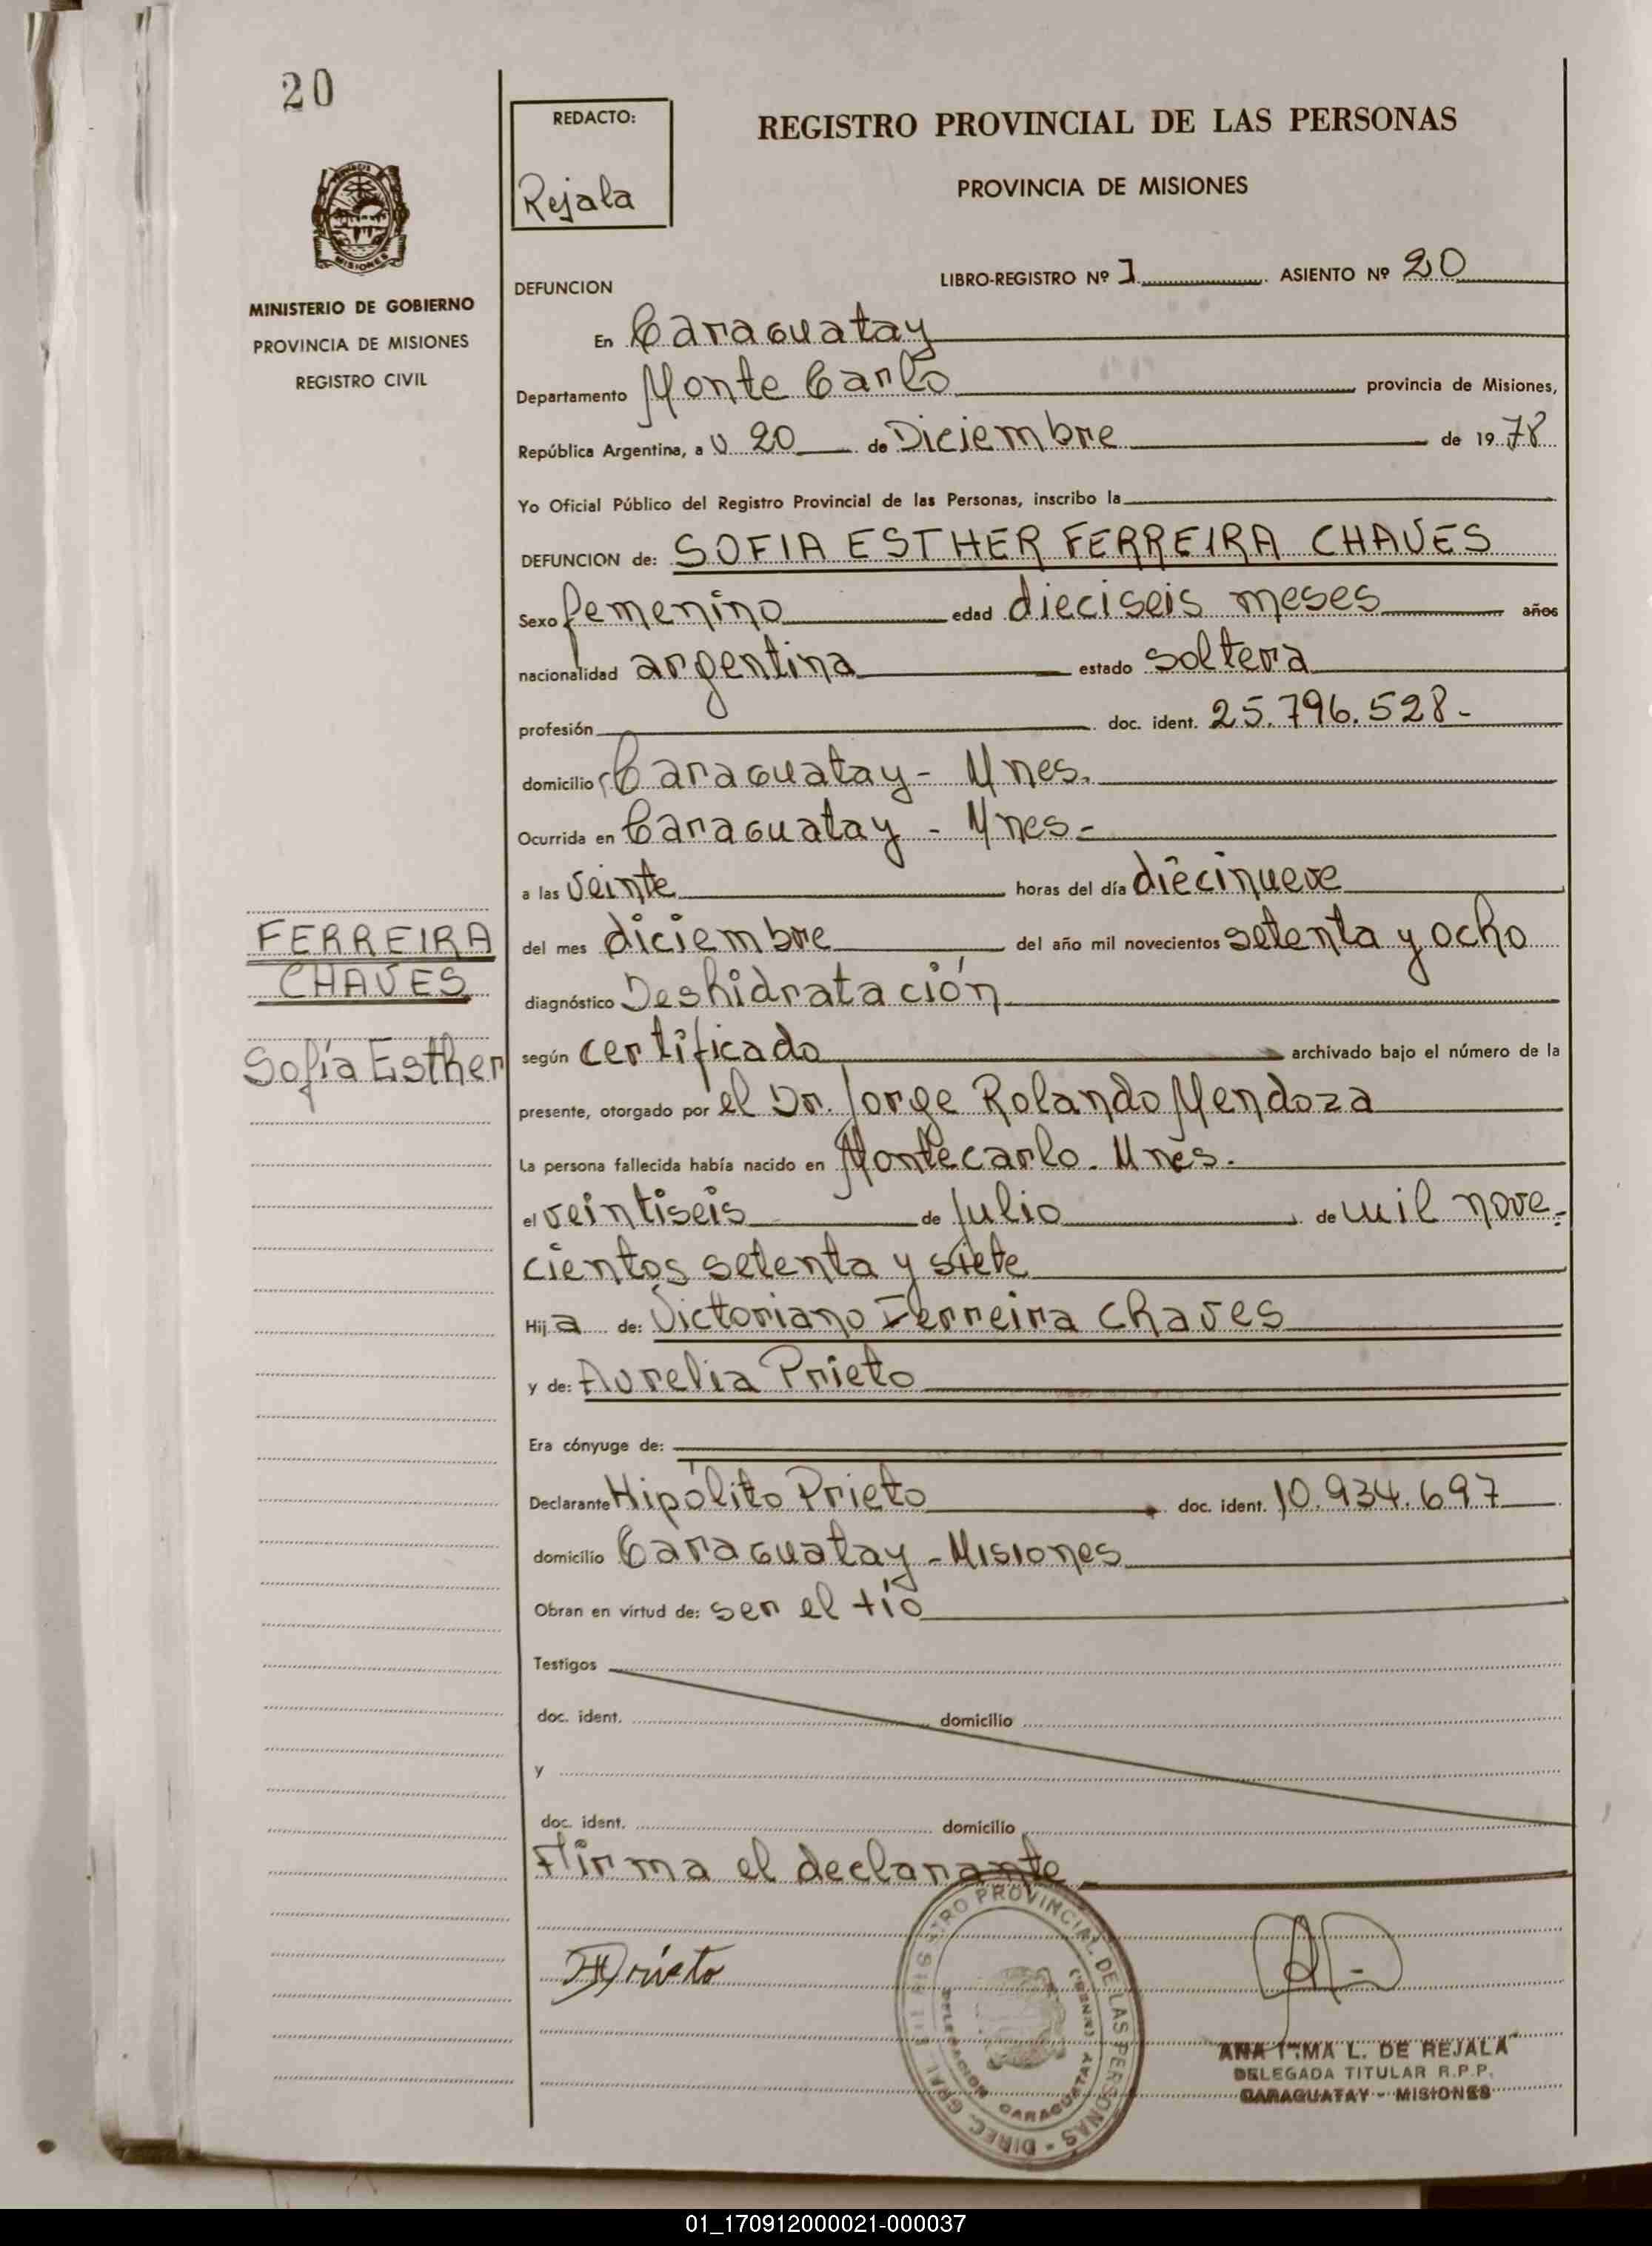 20
REDACTO:
Rejala
REGISTRO PROVINCIAL DE LAS PERSONAS
PROVINCIA DE MISIONES
MISIONES
MINISTERIO DE GOBIERNO
PROVINCIA DE MISIONES
REGISTRO CIVIL
LIBRO-REGISTRO Nº 1 ASIENTO Nº 20
DEFUNCION
En Caraguatay
Departamento Monte Carlo provincia de Misiones,
República Argentina, a 20 de Diciembre de 1978
Yo Oficial Público del Registro Provincial de las Personas, inscribo la
DEFUNCION de: SOFIA ESTHER FERREIRA CHAVES
Sexo femenino edad dieciseis meses años
nacionalidad argentina estado soltera
profesión doc. ident. 25.796.528-
domicilio Caraguatay - Mnes.
Ocurrida en Caraguatay - Mnes-
a las veinte horas del día diecinueve
del mes diciembre del año mil novecientos setenta y ocho
diagnóstico Deshidratación
según certificado archivado bajo el número de la
presente, otorgado por el Dr. Jorge Rolando Mendoza
La persona fallecida había nacido en Montecarlo. Mnes.
el veintiseis de Julio de mil nove-
cientos setenta y siete
Hija de: Victoriano Ferreira Chaves
y de: Aurelia Prieto
Era cónyuge de:
Declarante Hipólito Prieto doc. ident. 10.934.697
domicilio Caraguatay - Misiones
Obran en virtud de: ser el tío
Testigos
doc. ident. domicilio
y
doc. ident. domicilio
Firma el declarante
FERREIRA
CHAVES
Sofía Esther
HPrieto
REGISTRO PROVINCIAL DE LAS PERSONAS - DIREC. GRAL.
DELEGACION CARAGUATAY
ANA L. DE REJALA
DELEGADA TITULAR R.P.P.
CARAGUATAY - MISIONES
01_170912000021-000037